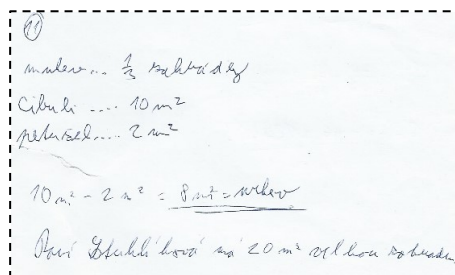 11
mrkev... 1/3 zahrádky
Cibuli .... 10 m²
petržel.... 2 m²
10 m² - 2 m² = 8 m² = mrkev
Paní Stuhlíková má 20 m² velkou zahradu